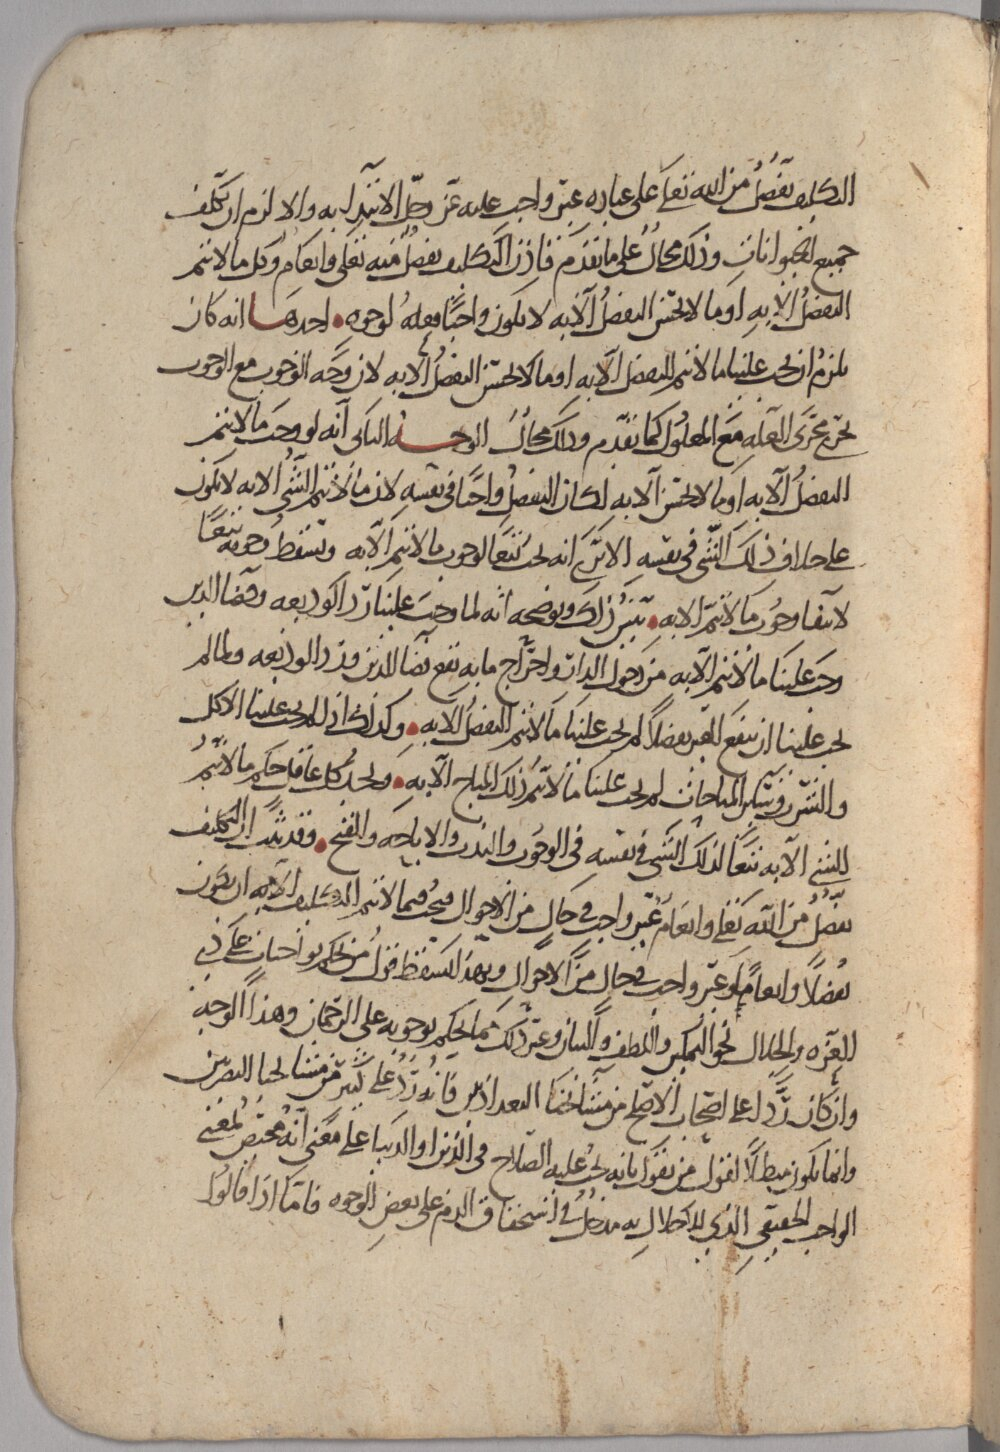 التكليف تفضل من الله تعلى على عباده غير واجب عليه عز وجل الابتداء به والا لزم ان يكلف
جميع الحيوانات وذلك محال على ما تقدم فاذن التكليف تفضل منه تعلى وانعام وكل ما لا يتم
التفضل الا به او ما لا يحسن التفضل الا به لا يكون واجبًا فعله لوجوه احدها انه كان
يلزم ان يجب علينا ما لا يتم التفضل الا به او ما لا يحسن التفضل الا به لان وجه الوجوب مع الوجوب
يجري مجرى العله مع المعلول كما تقدم وذلك محال الوجه الثاني انه لو وجب ما لا يتم
التفضل الا به او ما لا يحسن الا به لكان التفضل واجبًا في نفسه لان ما لا يتم الشي الا به لا يكون
على خلاف ذلك الشي في نفسه الا ترى انه يجب تبعًا لوجوب ما لا يتم الا به ويسقط وجوبه تبعًا
لانتفا وجوب ما لا يتم الا به يبين ذلك ويوضحه انه لما وجب علينا رد الوديعه وقضا الدين
وجب علينا ما لا يتم الا به من دخول الدار واخراج ما به يقع قضا الدين ورد الوديعه ولما لم
يجب علينا ان ننفع الغير تفضلًا لم يجب علينا ما لا يتم التفضل الا به وكذلك اذا لم يجب علينا الاكل
والشرب وساير المباحات لم يجب علينا ما لا يتم ذلك المباح الا به ويجد كل عاقل حكم ما لا يتم
الشي الا به تبعًا لذلك الشي في نفسه في الوجوب والندب والاباحه والقبح وقد ثبت ان التكليف
تفضل من الله تعلى وانعام غير واجب في حال من الاحوال فيجب فيما لا يتم التكليف الا به ان يكون
تفضلًا وانعامًا غير واجب في حال من الاحوال وبهذا يسقط قول من يحكم بواجبات على ذي
العزه والجلال نحو التمكين واللطف والبيان وغير ذلك مما يحكم بوجوبه على الرحمان وهذا الوجه
وان كان ردا على اصحاب الاصلح من مشائخنا البغداذيين فانه يرد على كثير من مشائخنا البصريين
وانما يكون مبطلًا لقول من يقول بانه يجب عليه الصلاح في الدين او الدنيا على معنى انه مختص بمعنى
الواجب الحقيقي الذي للاخلال به مدخل في استحقاق الذم على بعض الوجوه فاما اذا قالوا